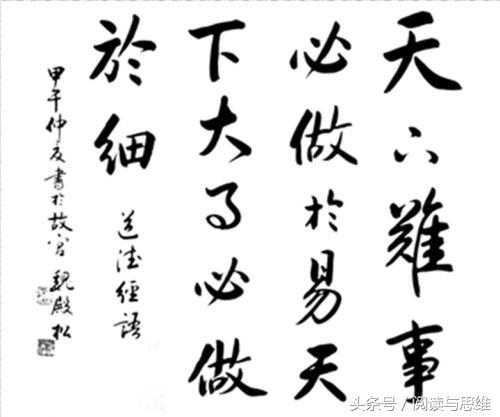 天下難事
必做於易天
下大事必做
於細
道德經語
甲午仲夏書於故宮 魏殿松
头条号 / 阅读与思维